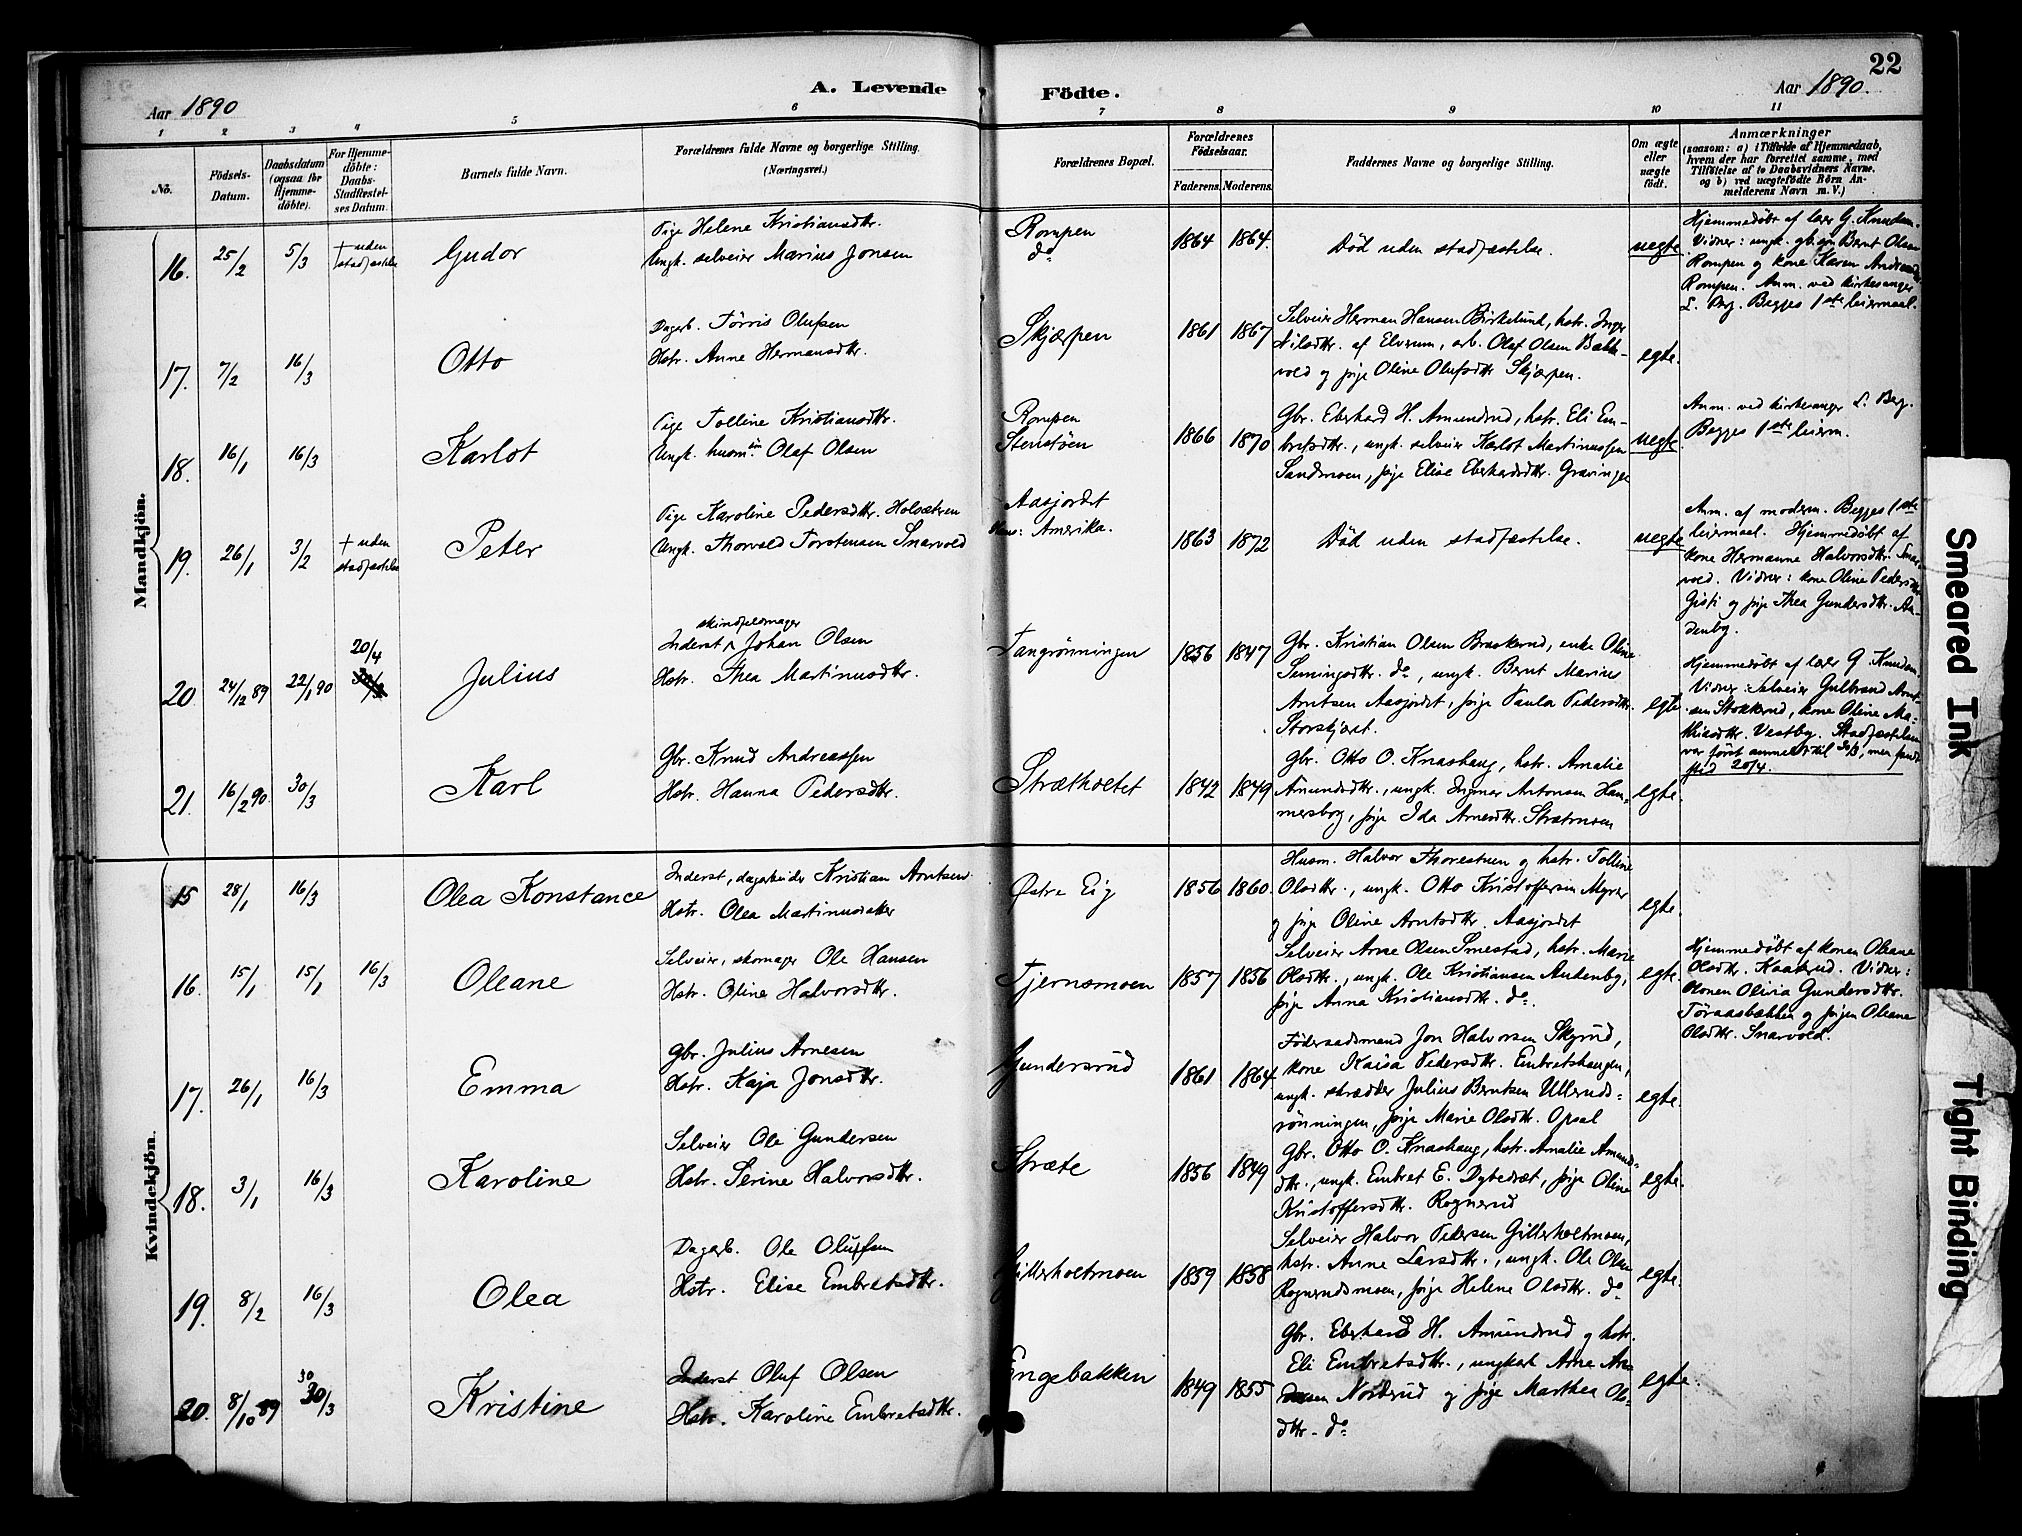 22
Aar 1890
A. Levende Födte.
Aar 1890.
1 2 3 4 5 6 7 8 9 10 11
No.
Födsels-
Datum.
Daabsdatum
(ogsaa for
Hjemme-
döbte).
For Hjemme-
döbte:
Daabs-
Stadfæstel-
ses Datum.
Barnets fulde Navn.
Forældrenes fulde Navne og borgerlige Stilling.
(Næringsvei.)
Forældrenes Bopæl.
Forældrenes
Födselsaar.
Faderens. Moderens.
Faddernes Navne og borgerlige Stilling.
Om ægte
eller
uægte
födt.
Anmærkninger
(saasom: a) i Tilfælde af Hjemmedaab,
hvem der har forrettet samme, med
Tilföielse af to Daabsvidners Navne.
og b) ved uægtefödte Börn An-
melderens Navn m. V.)
Mandkjön.
16. 25/2 5/3 + uden
stadfæstelse
Gudor
Pige Helene Kristiansdtr.
Ungk. selveier Marius Jonsen
Rompen
do
1864 1864.
Död uden stadfæstelse.
uegte
Hjemmedöbt af lærer G. Knudsen.
Vidner: ungk. gb.sön Bernt Olsen
Rompen og kone Karen Andreasdtr
Rompen. Anm. ved kirkesanger
L. Berg. Begges 1ste leiermaal.
17. 7/2 16/3
Otto
Dagarb. Törris Olufsen
Hstr. Anne Hermansdtr.
Skjærpen
1861 1867
Selveier Herman Hansen Birkelund, hstr. Inger
Nilsdtr. af Elverum, arb. Olaf Olsen Bakke-
vold og pige Oline Olufsdtr Skjærpen.
egte.
18. 16/1 16/3
Karlot
Pige Tolline Kristiansdtr.
Ungk. husm.sön Olaf Olsen
Rompen
Stenstöen
1866 1870
Gbr. Eberhard H. Amundrud, hstr. Eli Em-
bretsdtr., ungk. selveier Karlot Martinussen
Sandmoen, pige Elise Eberhardsdtr. Gravinge
uegte
Anm. ved kirkesanger L. Berg.
Begges 1ste leierm.
19. 26/1 3/2 + uden
stadfæstelse
Peter
Pige Karoline Pedersdtr. Holsæteren
Ungk. Thorvald Torstensen Snarvold
Aasjordet
Amerika.
1863 1872
Död uden stadfæstelse.
uegte
Anm. af moderen. Begges 1ste
leiermaal. Hjemmedöbt af
kone Hermanne Halvorsdtr. Snar-
vold. Vidner: kone Oline Pedersdtr
Gisti og pige Thea Gundersdtr. An-
denby.
20. 24/12 89 22/1 90 20/4
Julius
skindfelmager
Inderst ^ Johan Olsen
Hstr. Thea Martinusdtr.
Tangrönningen
1856 1847
Gbr. Kristian Olsen Braskerud, enke Oline
Semingsdtr. do, ungk. Bernt Marius
Arntsen Aasjordet, pige Paula Pedersdtr.
Storskjæret.
egte
Hjemmedöbt af lærer G. Knudsen.
Vidner: Selveier Gulbrand Arnt-
sen Stokkerud, kone Oline Ma-
thisdtr. Vestby. Stadfæstelsen
var först anmeldt til 30/3, men fandt
sted 20/4.
21. 16/2 90. 30/3
Karl
Gbr. Knud Andreassen
Hstr. Hanna Pedersdtr.
Strætkoltet
1842 1849
Gbr. Otto O. Knashaug, hstr. Amalie
Amundsdtr., ungk. Ingmar Antonsen Ham-
mersborg, pige Ida Arnesdtr. Strætmoen
egte.
Kvindekjön.
15 28/1 16/3
Olea Konstance
Inderst, dagarbeider Kristian Arntsen
Hstr. Olea Martinusdatter
Östre Eig
1856 1860.
Husm. Halvor Thorestuen og hstr. Tolline
Olsdtr., ungk. Otto Kristoffersen Myrer
og pige Oline Arntsdtr. Aasjordet
egte.
16. 15/1 15/1 16/3
Oleane
Selveier, skomager Ole Hansen
Hstr. Oline Halvorsdtr.
Tjernsmoen
1857 1856
Selveier Arne Olsen Smestad, hstr. Marie
Olsdtr., ungk. Ole Kristiansen Andenby,
pige Anna Kristiansdtr. do.
egte.
Hjemmedöbt af konen Oleane
Olsdtr. Kaaterud. Vidner:
Konen Olivia Gundersdtr.
Töraasbækken og pigen Oleane
Olsdtr. Snarvold.
17. 26/1 16/3
Emma
Gbr. Julius Arnesen
Hstr. Kaja Jonsdtr.
Gundersrud
1861 1864
Föderaadsmand Jon Halvorsen Skyrud,
kone Kaisa Pedersdtr. Embretshaugen,
ungk. skrædder Julius Berntsen Ulleruds-
rönningen, pige Marie Olsdtr. Opsal
egte.
18. 3/1 16/3
Karoline
Selveier Ole Gundersen
Hstr. Serine Halvorsdtr.
Stræte
1856 1849
Gbr. Otto O. Knashaug, hstr. Amalie Amunds-
dtr., ungk. Embret E. Dybedræt, pige Oline
Kristoffersdtr. Rognerud
egte.
19. 8/2 16/3
Olea
Dagarb. Ole Olufsen
Hstr. Elise Embretsdtr.
Gillerholtmoen
1859 1858
Selveier Halvor Pedersen Gillerholtmoen,
hstr. Anne Larsdtr., ungk. Ole Olsen
Rognerudsmoen, pige Helene Olsdtr. do
egte.
20. 8/10 89 30/3
Kristine
Inderst Oluf Olsen
Hstr. Karoline Embretsdtr.
Engebakken
1849 1855
Gbr. Eberhard H. Amundrud og hstr.
Eli Embretsdtr., ungkarl Arne
Nordsrud og pige Marthea Ols-
dtr. do
egte.
Smeared Ink
Tight Binding